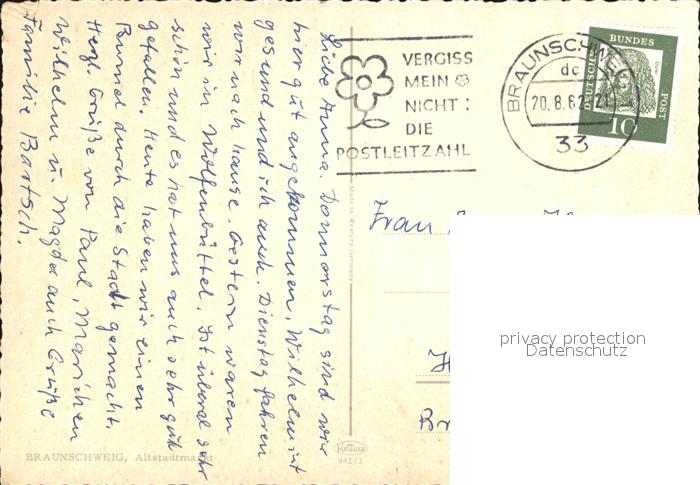 Liebe Anna. Donnerstag sind wir
hier gut angekommen, Wilhelm ist
gesund und ich auch. Dienstag fahren
wir nach hause. Gestern waren
wir in Wolfenbüttel. Ist überal sehr
schön und es hat uns auch sehr gut
gefallen. Heute haben wir einen
Bumel durch die Stadt gemacht.
Herzl. Grüße von Paul, Marichen
Wilhelm u. Magda auch Grüße
Familie Bartsch.
BRAUNSCHWEIG, Altstadtmarkt
VERGISS
MEIN
NICHT:
DIE
POSTLEITZAHL
BRAUNSCHWEIG
dc
20.8.62-21
33
DEUTSCHE
BUNDES
POST
10
Made in Western Germany
KRÜGER
942/3
Frau
Br
privacy protection
Datenschutz